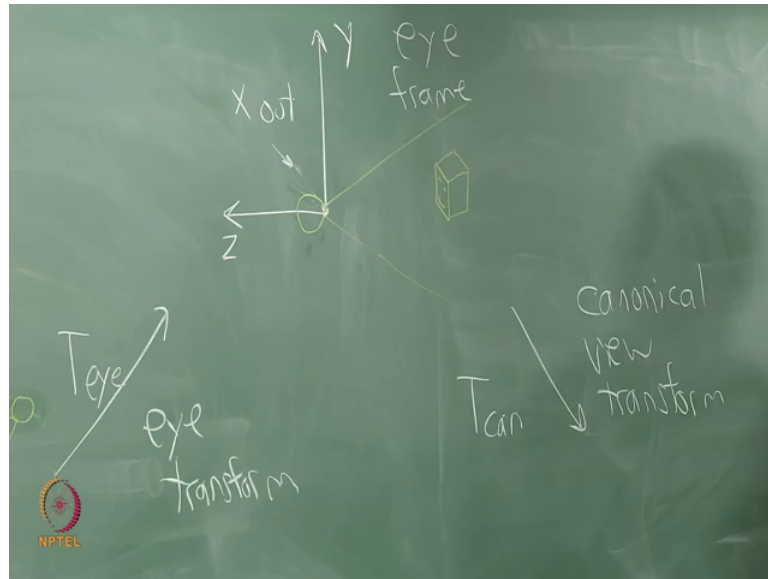 Y
eye
frame
X out
Z
Teye
eye
transform
Tcan
canonical
view
transform
NPTEL